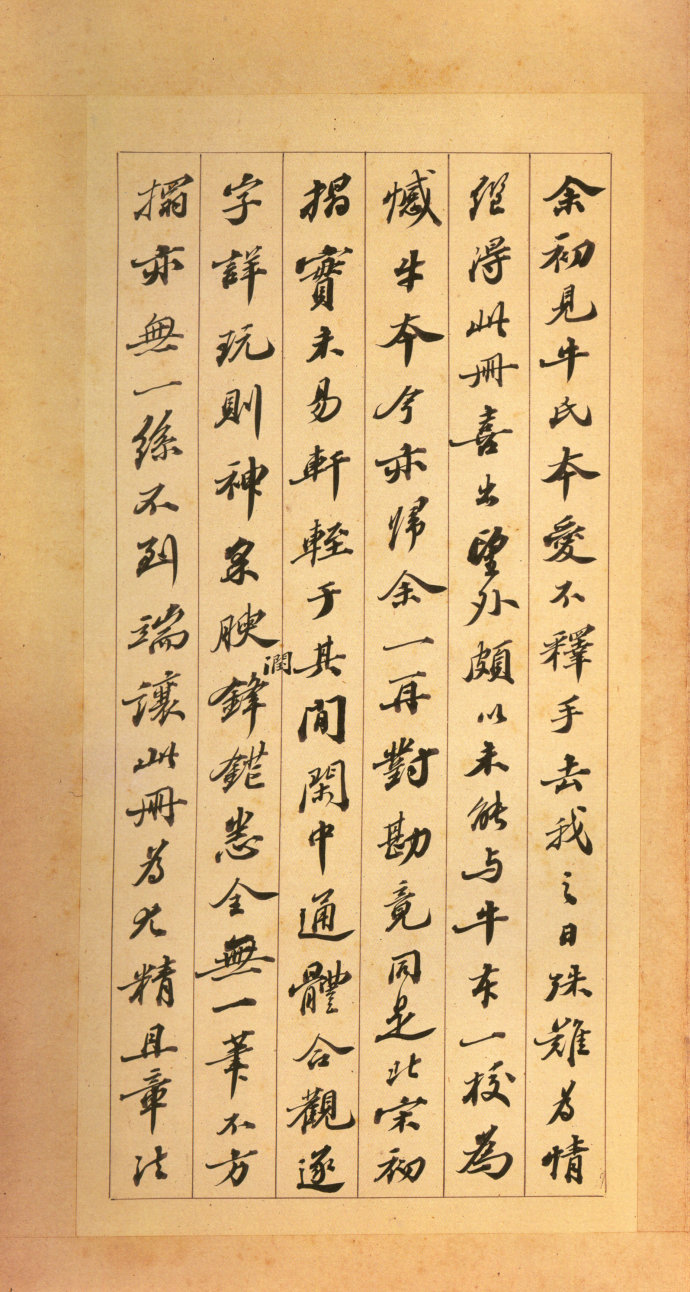 余初見牛氏本愛不釋手去我之日殊難為情
繼得此冊喜出望外頗以未能与牛本一校為
憾牛本今亦歸余一一再對勘竟同是北宋初
搨實未易軒輊于其間閑中通體合觀逐
字詳玩則神采腴潤鋒鍇悉全無一筆不方
搨亦無一絲不到端讓此冊為尤精且章法